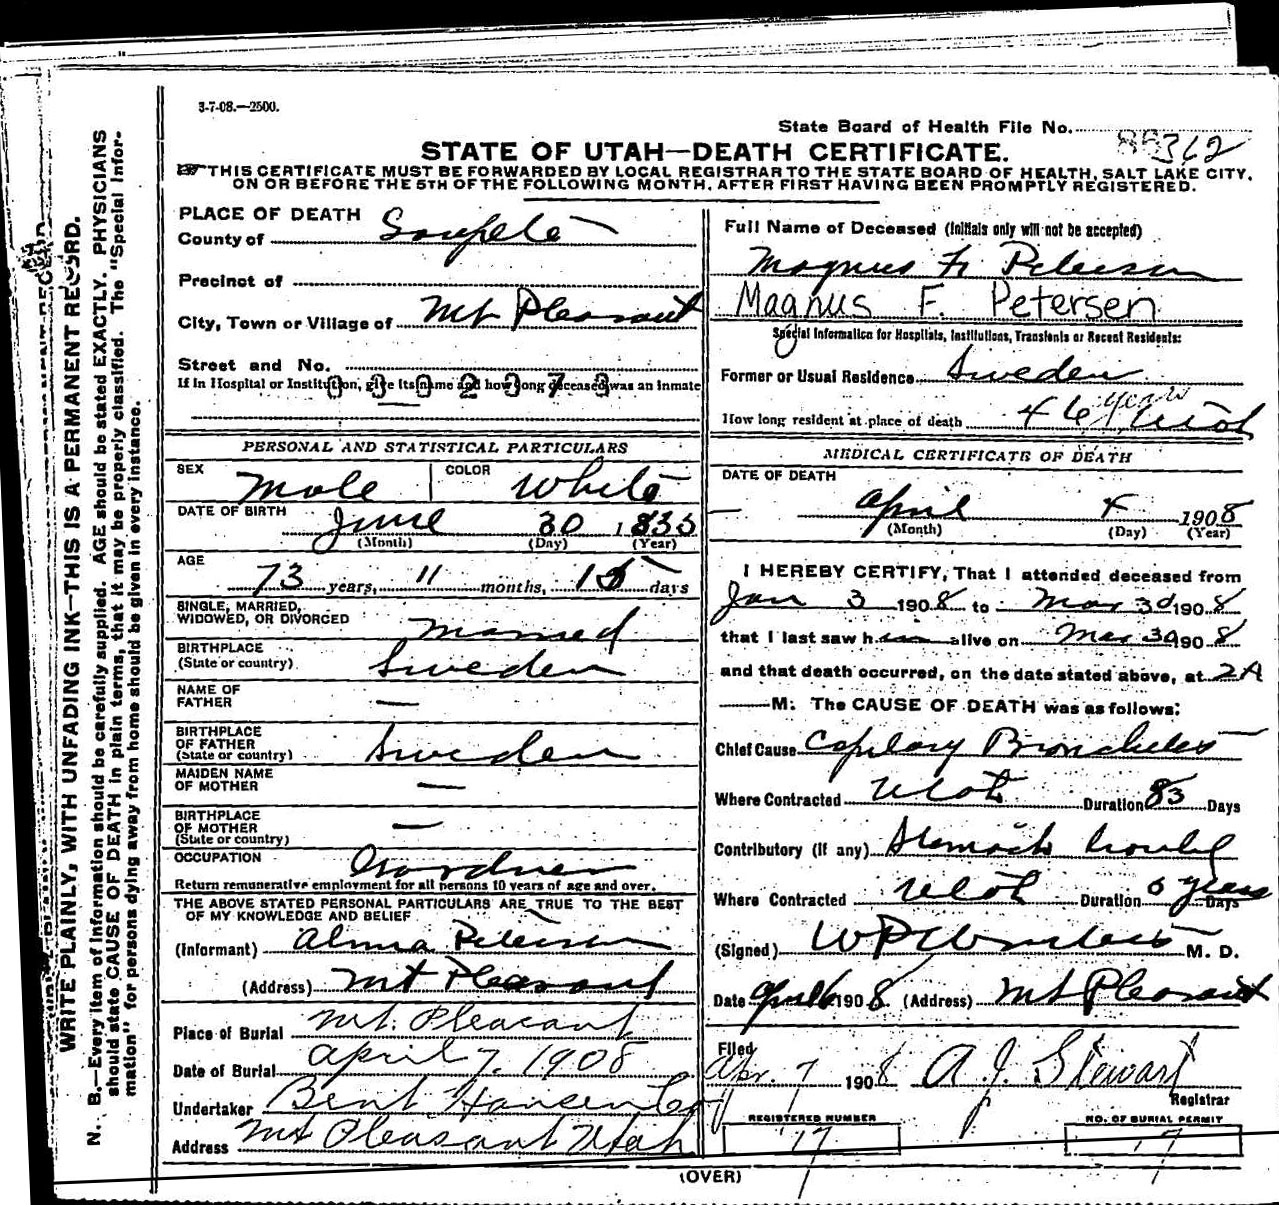 3-7-08.—2500.
State Board of Health File No. 362
STATE OF UTAH—DEATH CERTIFICATE.
THIS CERTIFICATE MUST BE FORWARDED BY LOCAL REGISTRAR TO THE STATE BOARD OF HEALTH, SALT LAKE CITY,
ON OR BEFORE THE 5TH OF THE FOLLOWING MONTH, AFTER FIRST HAVING BEEN PROMPTLY REGISTERED.
WRITE PLAINLY, WITH UNFADING INK—THIS IS A PERMANENT RECORD.
N. B.—Every item of information should be carefully supplied. AGE should be stated EXACTLY. PHYSICIANS
should state CAUSE OF DEATH in plain terms, that it may be properly classified. The "Special Infor-
mation" for persons dying away from home should be given in every instance.
PLACE OF DEATH
County of Sanpete
Precinct of
City, Town or Village of Mt Pleasant
Street and No.
If in Hospital or Institution, give its name and how long deceased was an inmate
0 3 0 2 3 7 3
PERSONAL AND STATISTICAL PARTICULARS
SEX Male COLOR White
DATE OF BIRTH June 30 183
(Month) (Day) (Year)
AGE
73 years, 11 months, 15 days
SINGLE, MARRIED,
WIDOWED, OR DIVORCED Married
BIRTHPLACE
(State or country) Sweden
NAME OF
FATHER —
BIRTHPLACE
OF FATHER
(State or country) Sweden
MAIDEN NAME
OF MOTHER —
BIRTHPLACE
OF MOTHER —
(State or country)
OCCUPATION Gardner
Return remunerative employment for all persons 10 years of age and over.
THE ABOVE STATED PERSONAL PARTICULARS ARE TRUE TO THE BEST
OF MY KNOWLEDGE AND BELIEF
(Informant) Alma Petersen
(Address) Mt Pleasant
Place of Burial Mt. Pleasant
Date of Burial April 7. 1908
Undertaker Bent Hansen Co
Address Mt Pleasant Utah
Full Name of Deceased (Initials only will not be accepted)
Magnus F. Petersen
Magnus F. Petersen
Special Information for Hospitals, Institutions, Transients or Recent Residents:
Former or Usual Residence Sweden
How long resident at place of death 46 years Utah
MEDICAL CERTIFICATE OF DEATH
DATE OF DEATH
April 4 1908
(Month) (Day) (Year)
I HEREBY CERTIFY, That I attended deceased from
Jan 3 1908 to Mar 30 1908
that I last saw him alive on Mar 30 1908
and that death occurred, on the date stated above, at 2A
M. The CAUSE OF DEATH was as follows:
Chief Cause Capilary Bronchites
Where Contracted Utah Duration 83 Days
Contributory (if any) Stomach trouble
Where Contracted Utah Duration 6 years Days
(Signed) M. D.
Date April 6 1908 (Address) Mt Pleasant
Filed
Apr. 7 1908 A. J. Stewart
Registrar
REGISTERED NUMBER
17
NO. OF BURIAL PERMIT
17
(OVER)